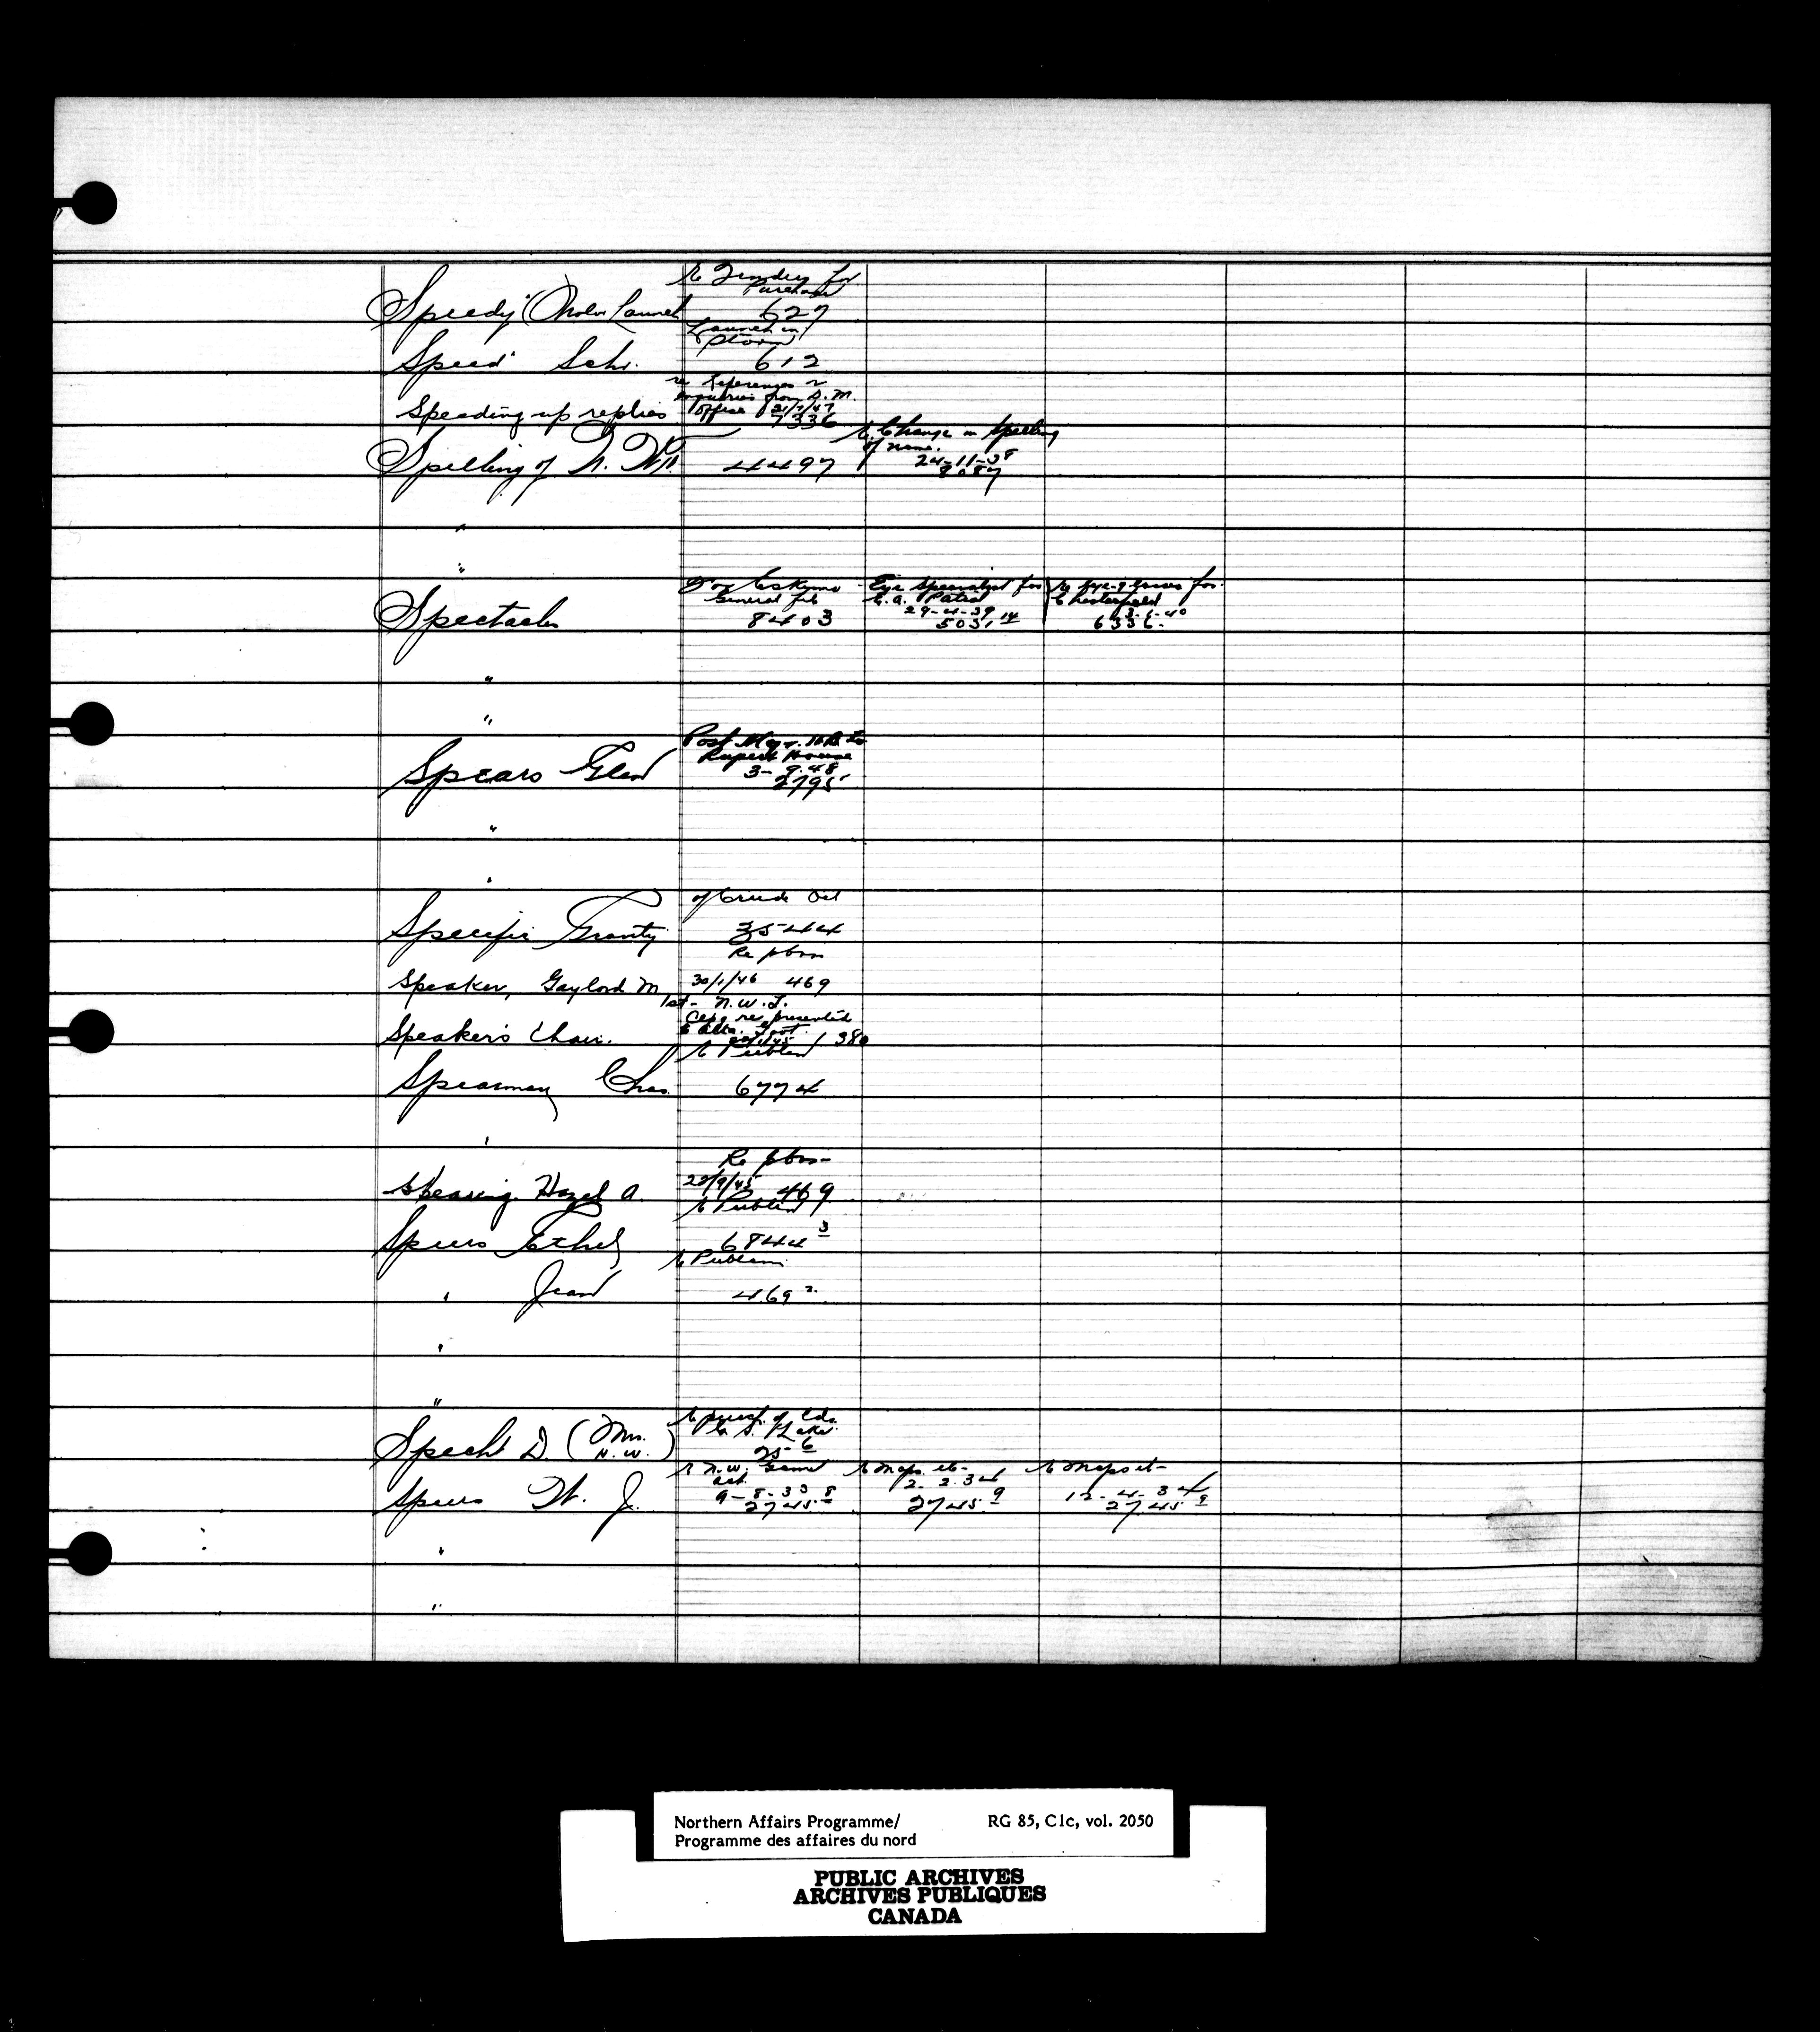 re Tenders for
Purchase
Speedy (Motor Launch 627
Launch in
Storm
Speed Schr. 612
re References re
enquiries from D. M.
Office 21/7/47
Speeding up replies 7336
re Change in Spelling
of name.
Spelling of N. W. 4497 24-11-38
8087
"
"
For Eskimo Eye Specialist for re Eye-glasses for
General file E. A. Patrol Chesterfield
29-4-39 3-6-40
Spectacles 8403 5031 14 6336
"
"
Post Mgr. H.B. Co
Rupert House
3-9-48
Spears Glen 2795
"
"
of Crude Oil
Specific Gravity 3544
Re pbns
Speaker, Gaylord M 30/1/46 469
1st - N.W.T.
represented
Alta. Govt.
Speaker's Chair. 380
re Publen
Spearman Chas. 6774
"
Re pbns
23/9/45
Spearing Hazel A. 469
re Publen
Speers Ethel 6844 3
re Publcns
" Jean 469 2
"
"
Specht D. (Mrs. H. W.) 25 6
re N.W. Game re Maps etc- re Maps etc-
Act. 2-2-34 12-4-34
9-8-33
Speers W. J. 2745 8 2745 9 2745 9
"
"
Northern Affairs Programme/ RG 85, C1c, vol. 2050
Programme des affaires du nord
PUBLIC ARCHIVES
ARCHIVES PUBLIQUES
CANADA